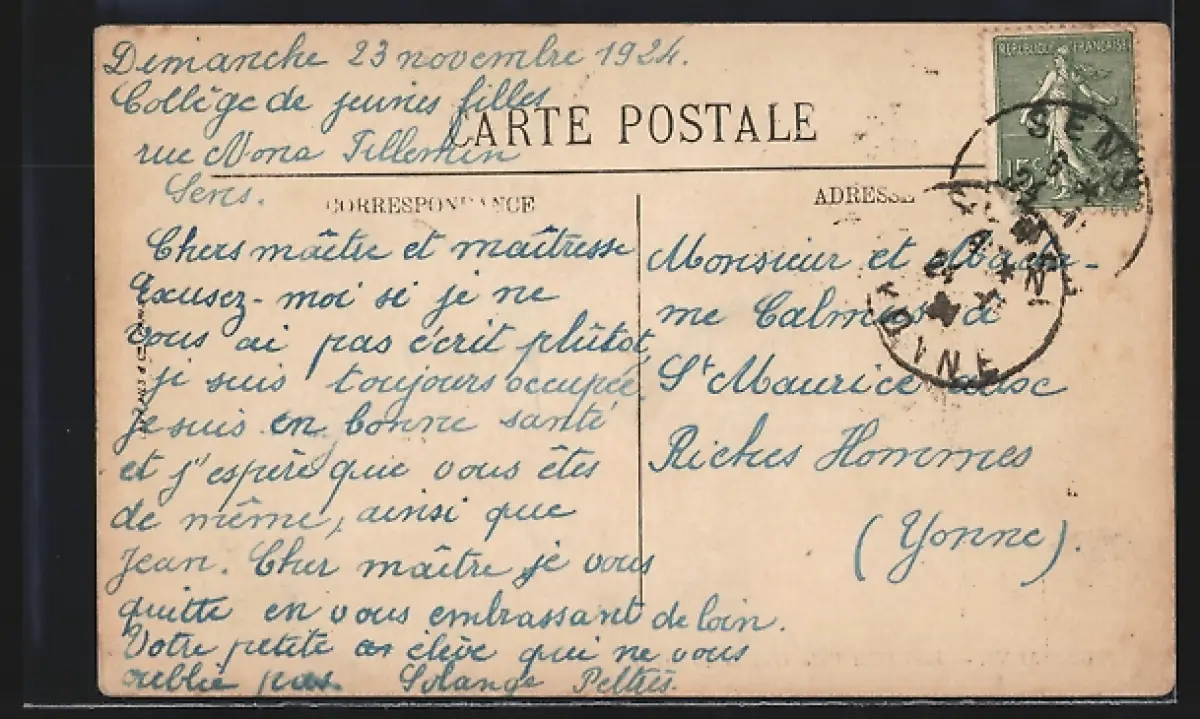 Dimanche 23 novembre 1924.
Collège de jeunes filles
rue Nona Tillemin
Sens.
CARTE POSTALE
CORRESPONDANCE
Chers maître et maîtresse
Excusez-moi si je ne
vous ai pas écrit plûtot,
je suis toujours occupée
Je suis en bonne santé
et j'espère que vous êtes
de même, ainsi que
Jean. Cher maître, je vous
quitte en vous embrassant de loin.
Votre petite élève qui ne vous
oublie pas. Solange Peltrès.
ADRESSE
Monsieur et Mada-
me Calmus à
St Maurice aux
Riches Hommes
(Yonne).
REPUBLIQUE FRANÇAISE
15c
SENS
YONNE